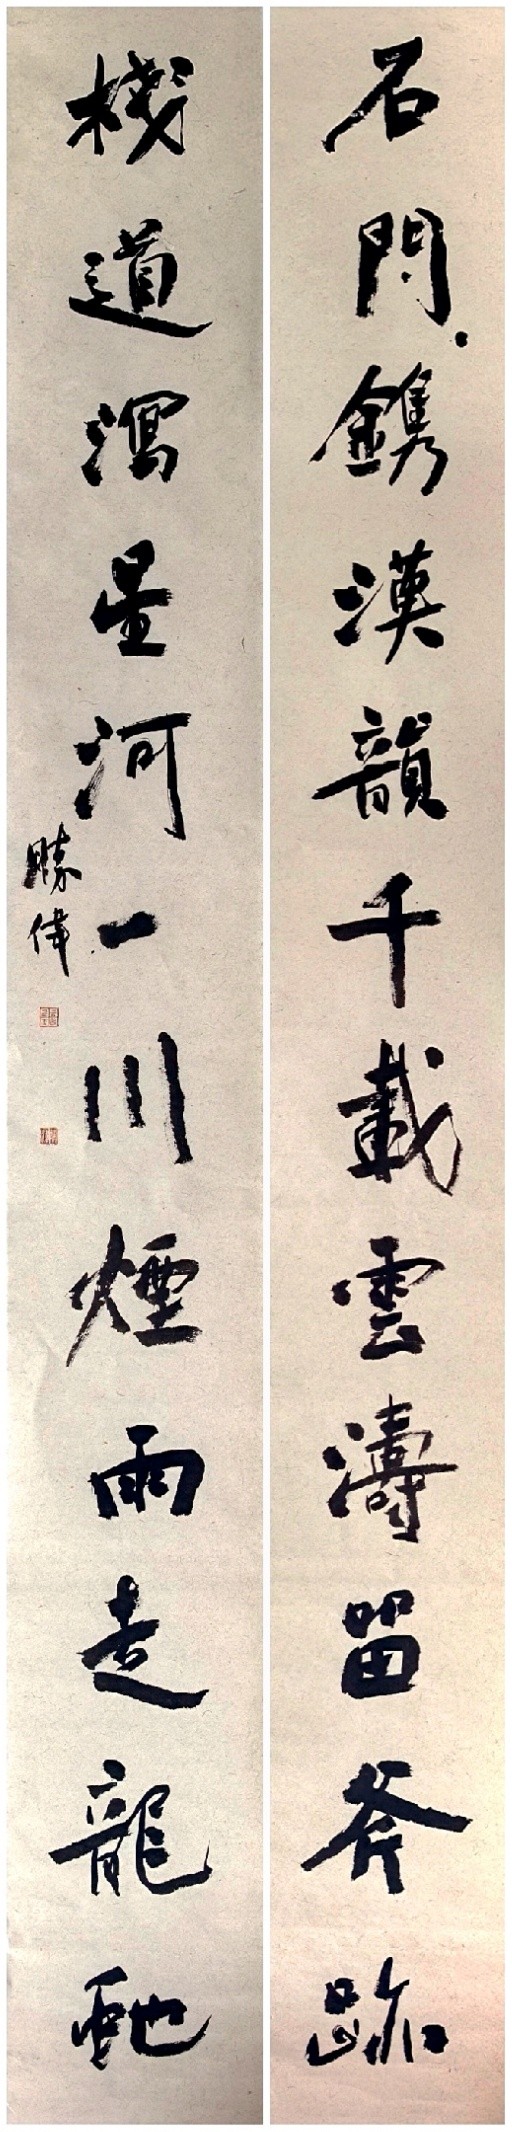 石門鐫漢韻千載雲濤留斧跡
棧道瀉星河一川煙雨走龍虵
勝偉